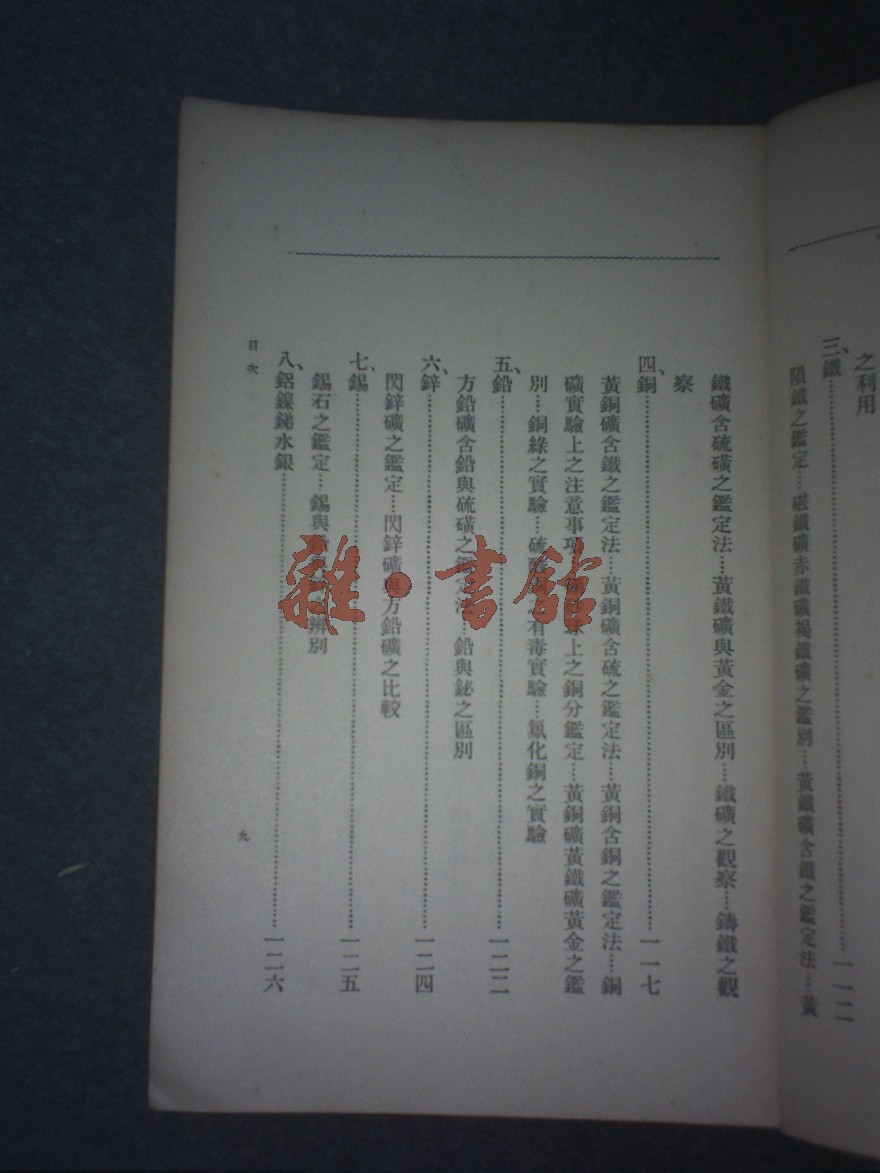 之利用
三、鐵……一一二
隕鐵之鑑定…磁鐵礦赤鐵礦褐鐵礦之鑑別…黃鐵礦含鐵之鑑定法…黃
鐵礦含硫磺之鑑定法…黃鐵礦與黃金之區別…鐵礦之觀察…鑄鐵之觀
察
四、銅……一一七
黃銅礦含鐵之鑑定法…黃銅礦含硫之鑑定法…黃銅含銅之鑑定法…銅
礦實驗上之注意事項 上之銅分鑑定…黃銅礦黃鐵礦黃金之鑑
別…銅綠之實驗…硫 有毒實驗…氯化銅之實驗
五、鉛……一二二
方鉛礦含鉛與硫磺之鑑定法…鉛與鉍之區別
六、鋅……一二四
閃鋅礦之鑑定…閃鋅礦與方鉛礦之比較
七、錫……一二五
錫石之鑑定…錫與 辨別
八、鋁鎳銻水銀……一二六
目次
九
雜·書館